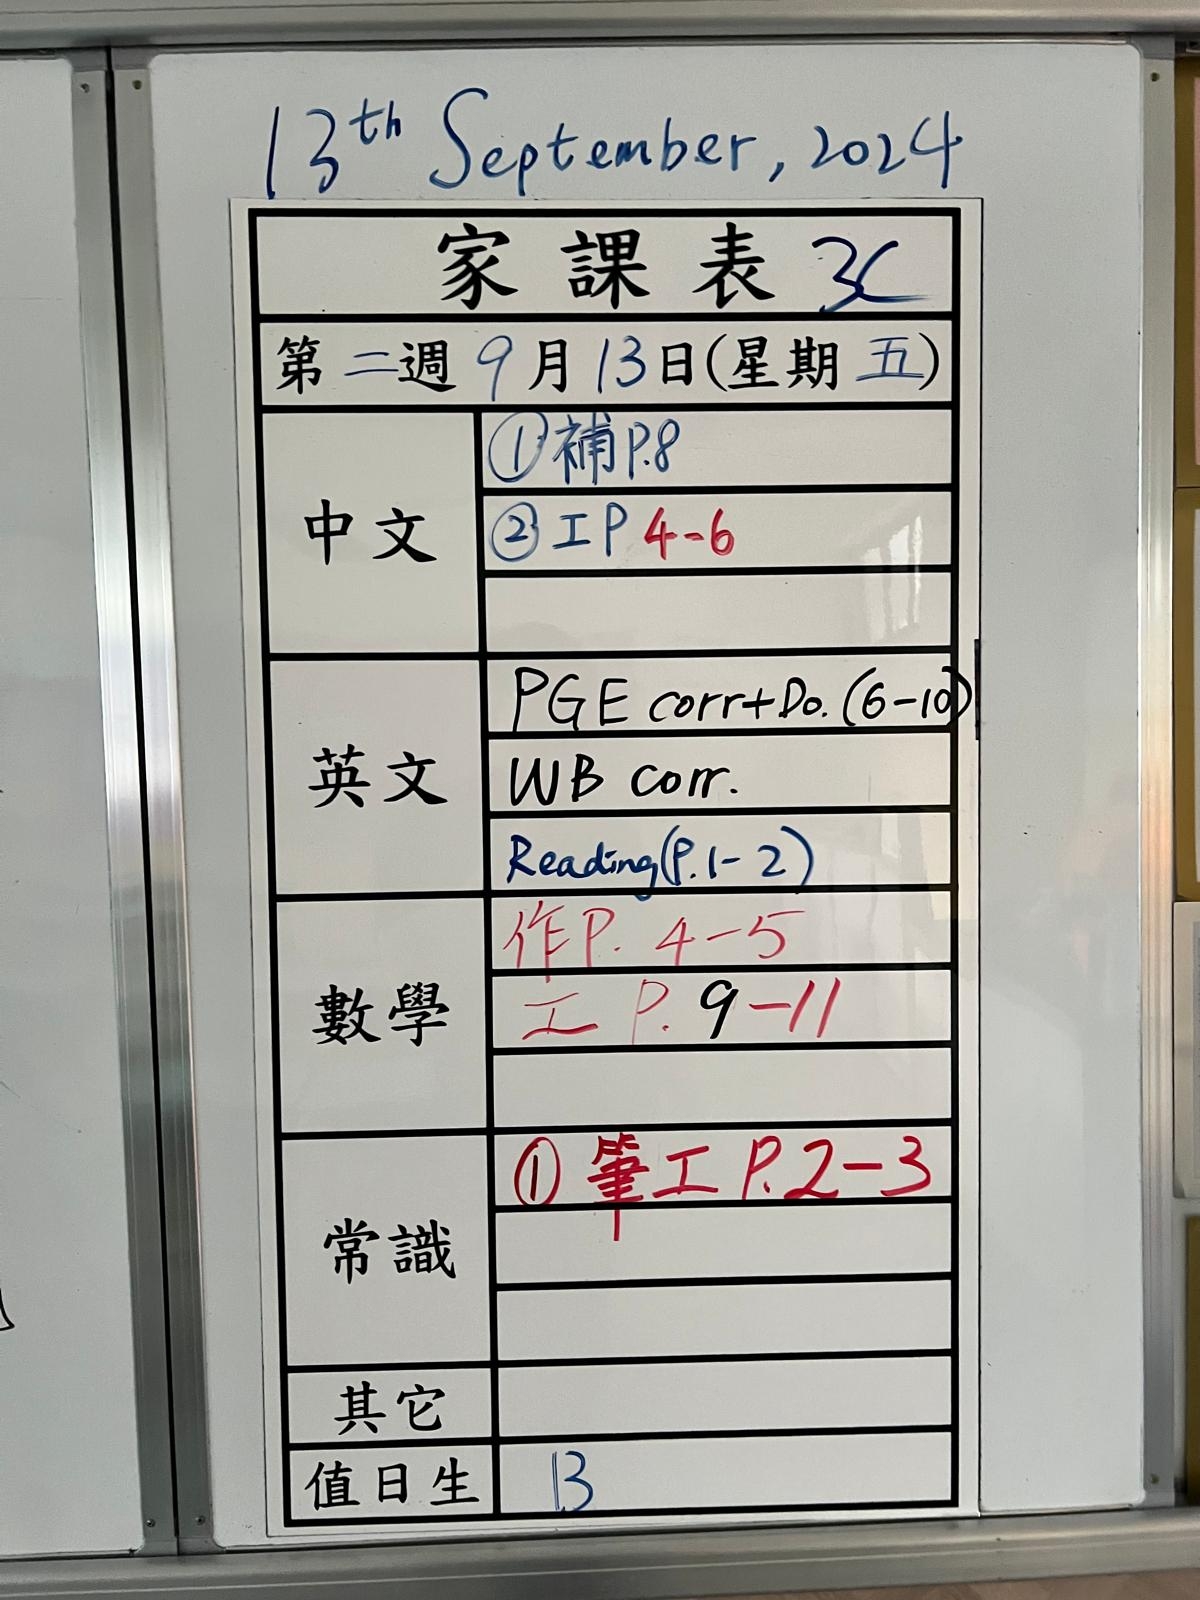 13th September, 2024
家課表 3C
第二週 9月13日(星期五)
中文
①補P.8
②工P 4-6
英文
PGE corr+Do. (6-10)
WB corr.
Reading(P.1-2)
數學
作P. 4-5
工 P. 9-11
常識
① 筆工 P.2-3
其它
值日生
13